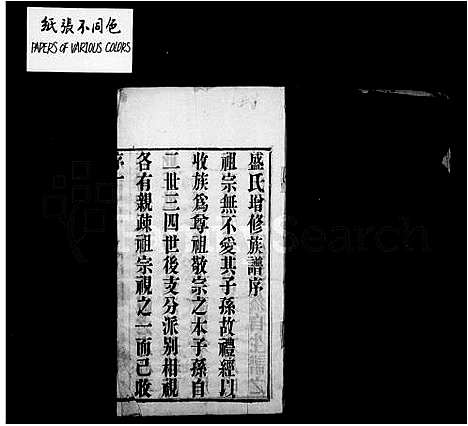 紙張不同色
PAPERS OF VARIOUS COLORS
盛氏增修族譜序
祖宗無不愛其子孫故禮經以
收族爲尊祖敬宗之本子孫自
二世三四世後支分派别相視
各有親疎祖宗視之一而已收